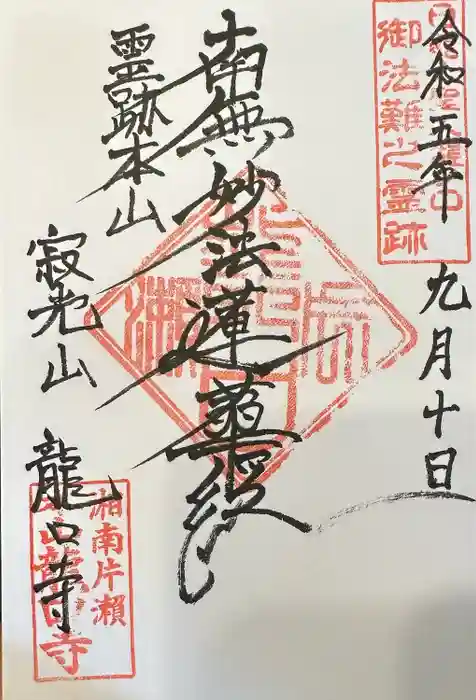 令和五年 九月十日
御法難之霊跡
南無妙法蓮華経
霊跡本山
寂光山 龍口寺
湘南片瀬
龍口寺